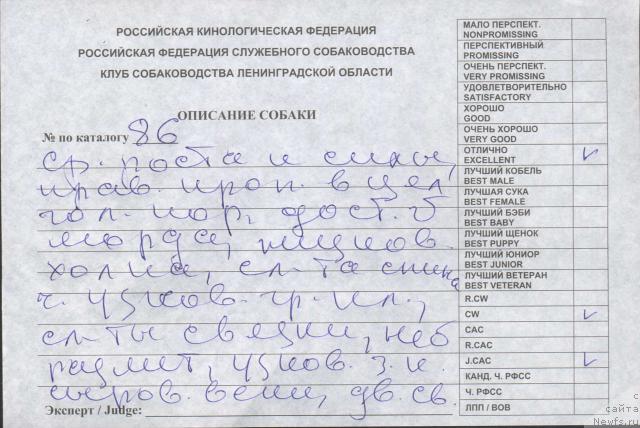 РОССИЙСКАЯ КИНОЛОГИЧЕСКАЯ ФЕДЕРАЦИЯ
РОССИЙСКАЯ ФЕДЕРАЦИЯ СЛУЖЕБНОГО СОБАКОВОДСТВА
КЛУБ СОБАКОВОДСТВА ЛЕНИНГРАДСКОЙ ОБЛАСТИ
ОПИСАНИЕ СОБАКИ
№ по каталогу 86
ср. роста и силы,
прав. проп. в цел,
гол. нор, дост. б
морда,
холка, сл-та спина
ч. узков. гр. кл.,
сл-ты связки, неб
размет, узков. з. к.
широв. веки, дв. св.
Эксперт / Judge:
МАЛО ПЕРСПЕКТ.
NONPROMISSING
ПЕРСПЕКТИВНЫЙ
PROMISSING
ОЧЕНЬ ПЕРСПЕКТ.
VERY PROMISSING
УДОВЛЕТВОРИТЕЛЬНО
SATISFACTORY
ХОРОШО
GOOD
ОЧЕНЬ ХОРОШО
VERY GOOD
ОТЛИЧНО
EXCELLENT
ЛУЧШИЙ КОБЕЛЬ
BEST MALE
ЛУЧШАЯ СУКА
BEST FEMALE
ЛУЧШИЙ БЭБИ
BEST BABY
ЛУЧШИЙ ЩЕНОК
BEST PUPPY
ЛУЧШИЙ ЮНИОР
BEST JUNIOR
ЛУЧШИЙ ВЕТЕРАН
BEST VETERAN
R.CW
CW
CAC
R.CAC
J.CAC
КАНД. Ч. РФСС
Ч. РФСС
ЛПП / BOB
с
сайта
Newfs.ru